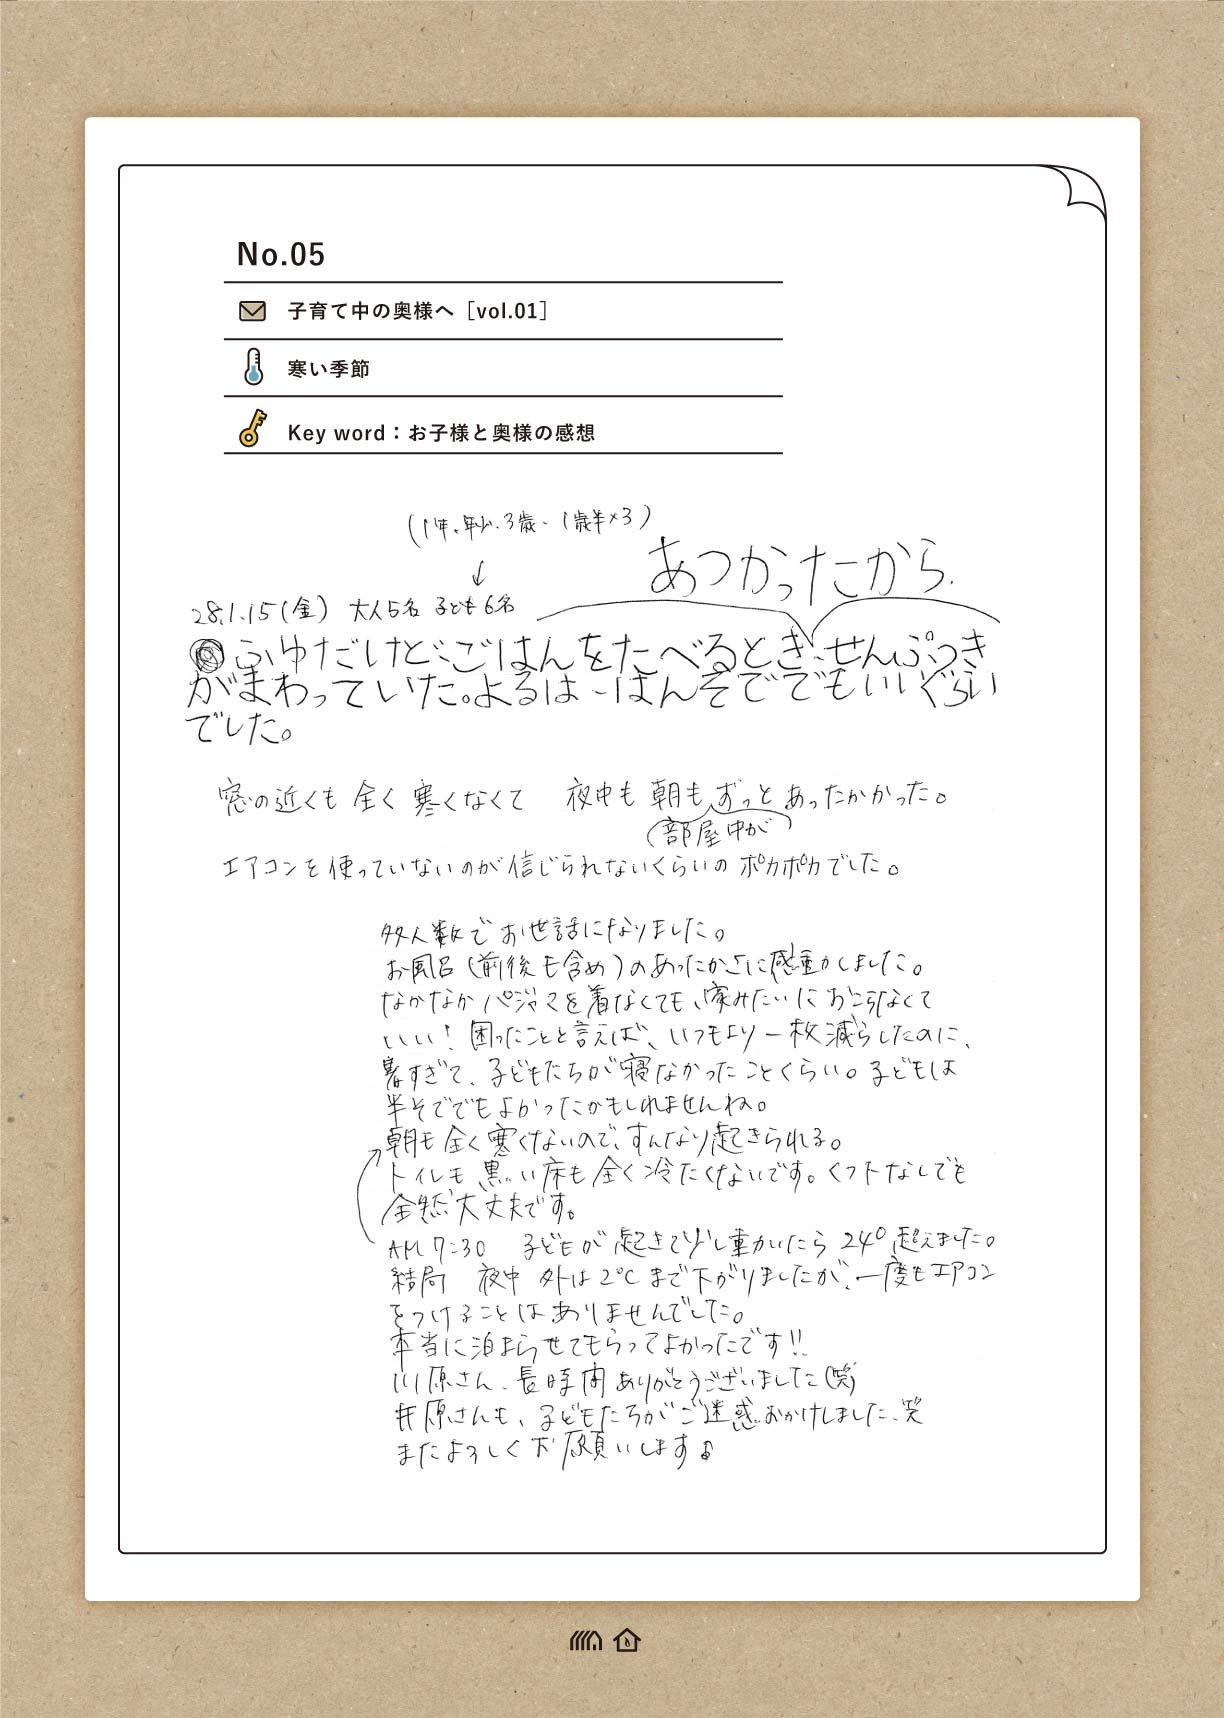 No.05
子育て中の奥様へ［vol.01］
寒い季節
Key word：お子様と奥様の感想
(1年、年少、3歳、1歳半×3)
↓
あつかったから
28.1.15(金) 大人5名 子ども6名
ふゆだけど、ごはんをたべるとき、せんぷうき
がまわっていた。よるは、はんそででもいいぐらい
でした。
窓の近くも 全く 寒くなくて 夜中も 朝も ずっと あったかかった。
(部屋中が)
エアコンを使っていないのが信じられないくらいの ポカポカでした。
多人数で お世話になりました。
お風呂(前後も含め)のあったかさに感動しました。
なかなか パジャマを着なくても、家みたいに おこらなくて
いい! 困ったことと言えば、いつもより一枚減らしたのに、
暑すぎて、子どもたちが寝なかったことくらい。子どもは
半そででもよかったかもしれませんね。
朝も 全く寒くないので、すんなり起きられる。
トイレも 黒い床も 全く冷たくないです。くつ下なしでも
全然大丈夫です。
AM 7:30 子どもが 起きて少し動いたら 24° 超えました。
結局 夜中 外は 2℃まで下がりましたが、一度もエアコン
をつけることは ありませんでした。
本当に泊まらせてもらってよかったです!!
川原さん、長時間ありがとうございました(笑)
井原さんも、子どもたちがご迷惑おかけしました、笑
またよろしくお願いします♪